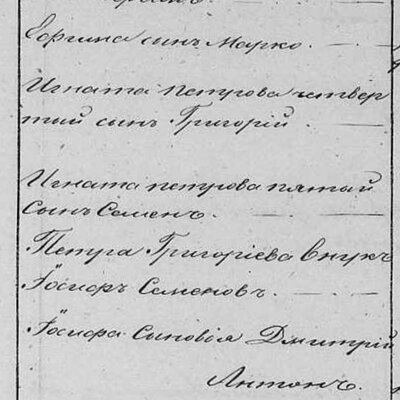 Ефима сынъ Марко.
Игната Петрова четвер
тый сынъ Григорій
Игната Петрова пятый
сынъ Семенъ.
Петра Григоріева внукъ
Іосифъ Семеновъ.
Іосифа сыновія Дмитрій
Антонъ.